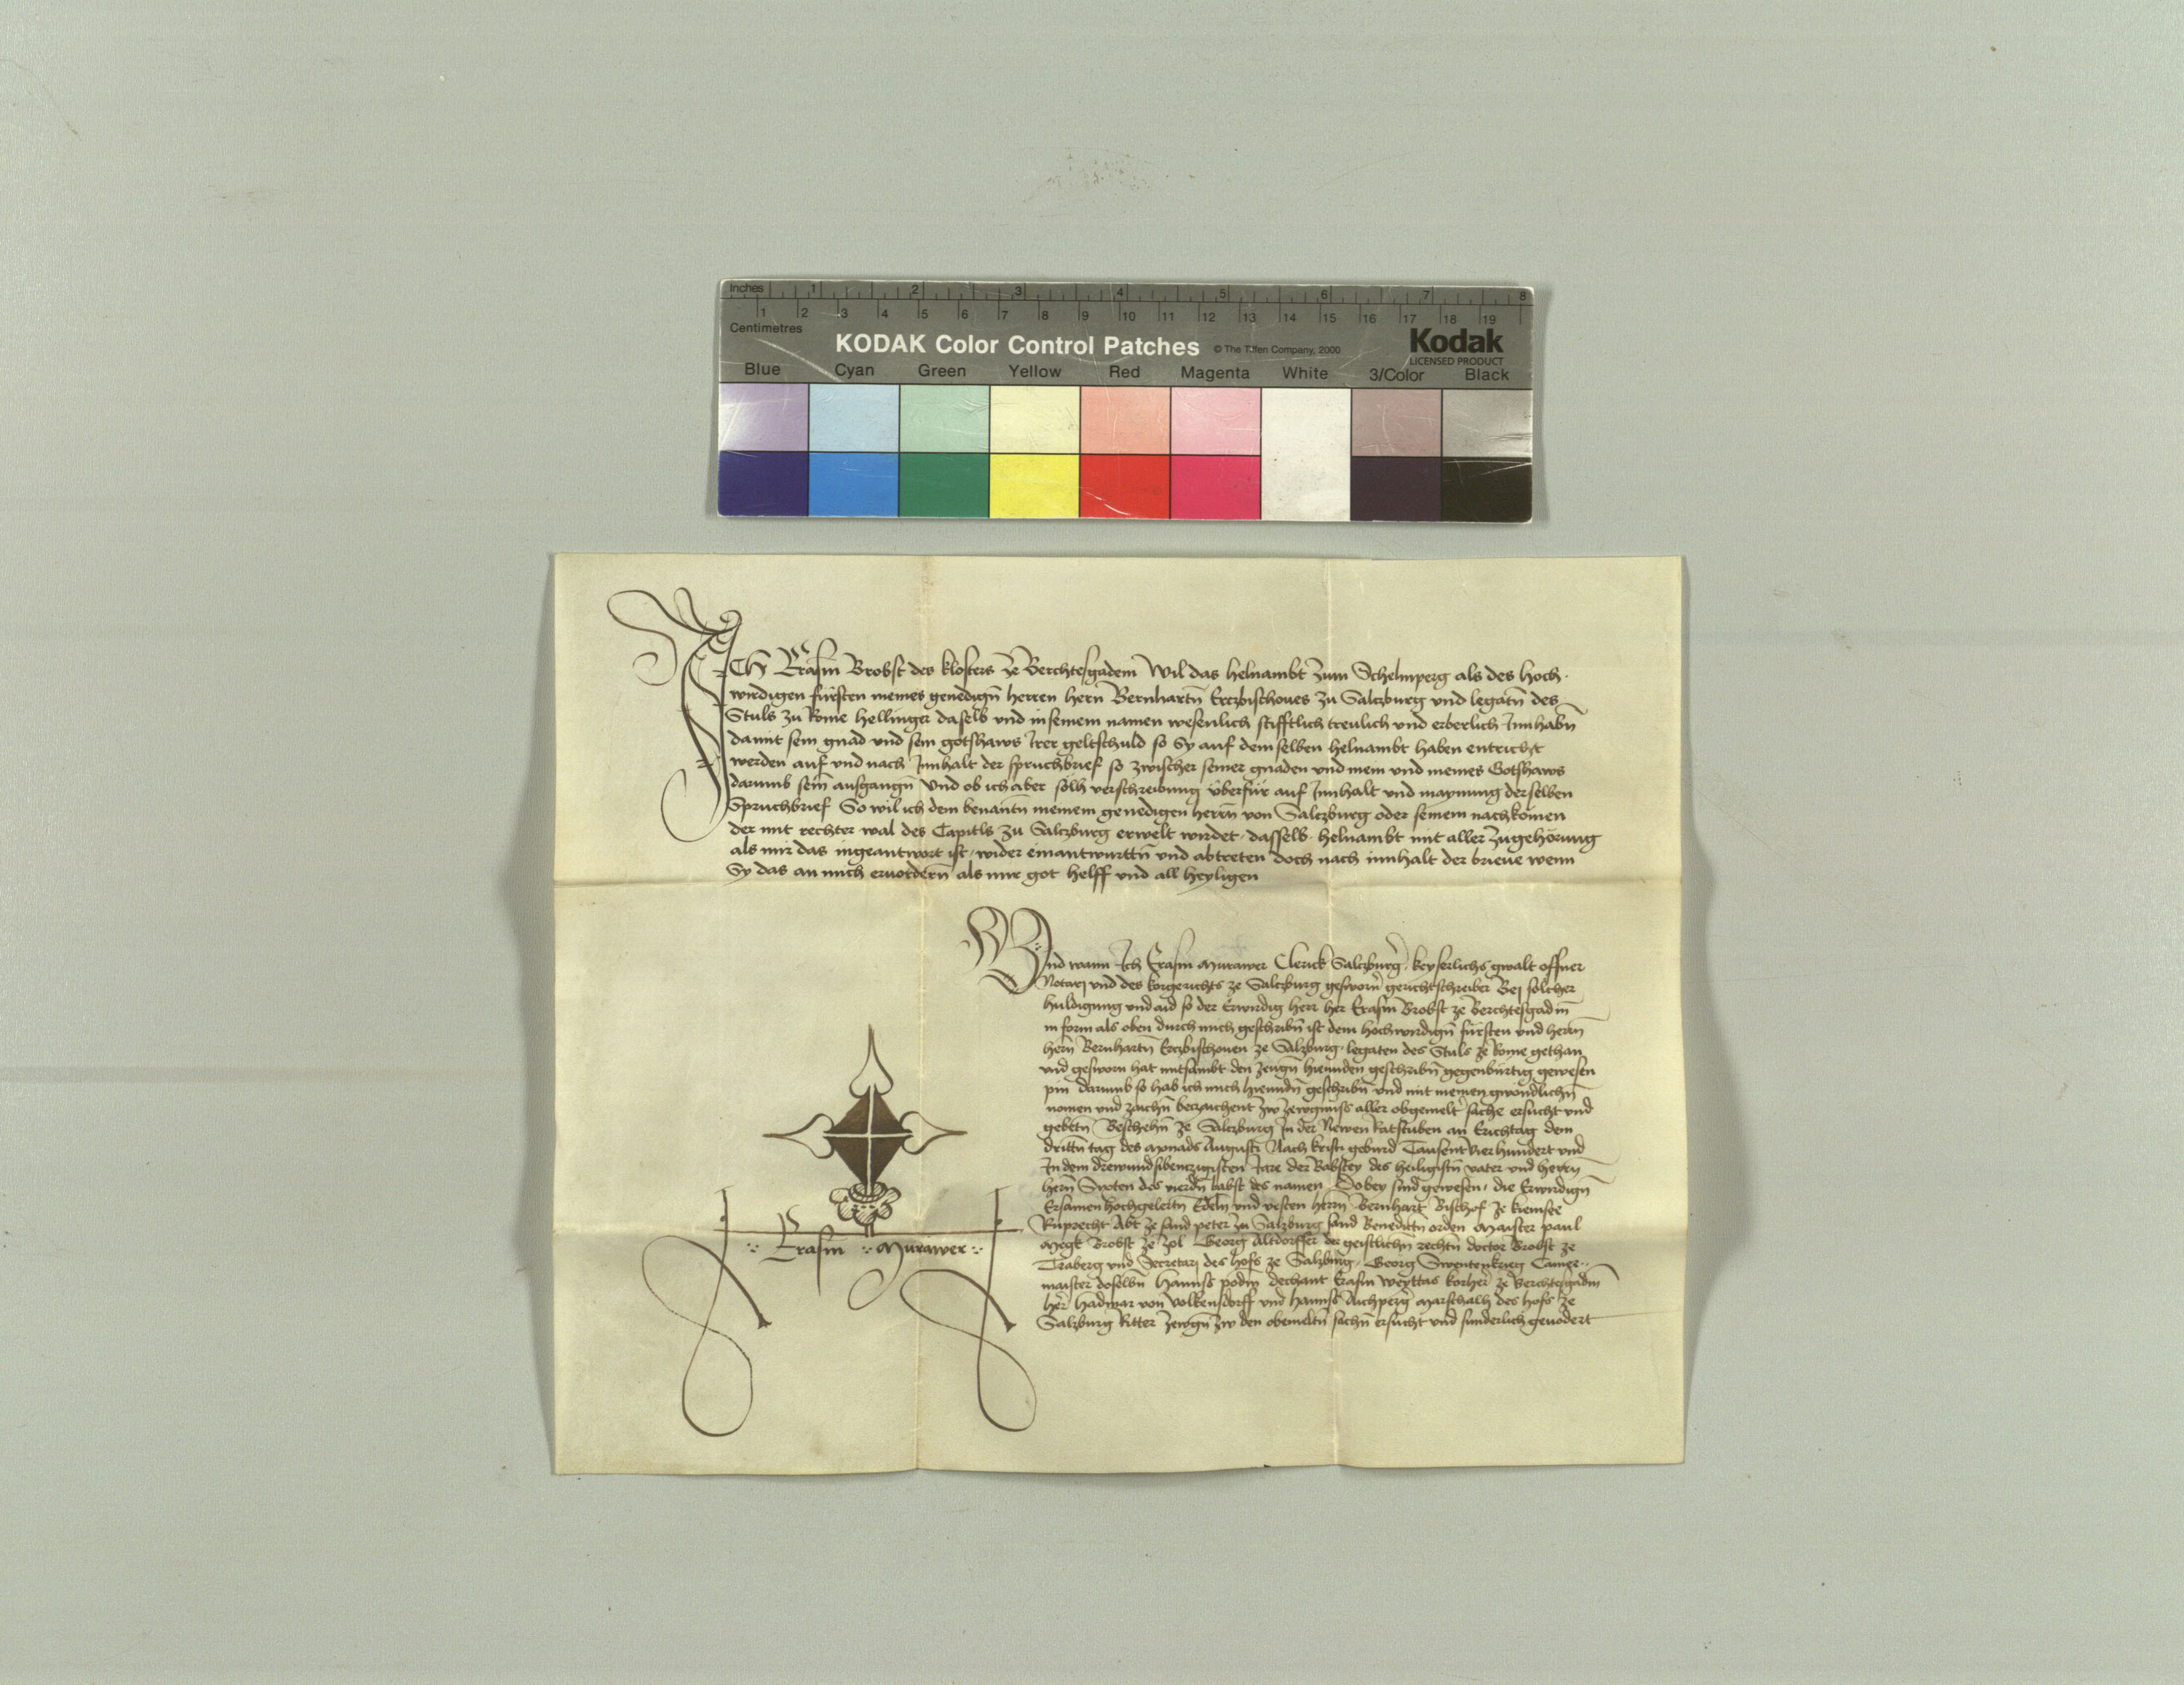 Inches 1 2 3 4 5 6 7 8
1 2 3 4 5 6 7 8 9 10 11 12 13 14 15 16 17 18 19
Centimetres
KODAK Color Control Patches © The Tiffen Company, 2000 Kodak
LICENSED PRODUCT
Blue Cyan Green Yellow Red Magenta White 3/Color Black
ICh Erasm Brobst des klosters ze Berchtesgadem Wil das helnambt zum Schelmperg als des hoch
wirdigen fürsten meines genedign̄ herren hern̄ Bernhartn̄ Erczbischoues zu Salczburg vnd legatn̄ des
Stuls zu Rome hellinger daselb vnd in seinem namen wesenlich stifftlich treulich vnd erberlich Innhabn̄
damit sein gnad vnd sein gotshaws Irer geltschuld so Sy auf demselben helnambt haben entricht
werden auf vnd nach Innhalt der spruchbrief so zwischer seiner gnaden vnd mein vnd meines Gotshaws
darumb sein ausgangn̄ Vnd ob ich aber sölh verschreibung überfür auf Innhalt vnd maynung derselben
Spruchbrief So wil ich dem benantn̄ meinem genedigen herrn̄ von Salczburg oder seinem nachkomen
der mit rechter wal des Capitls zu Salczburg erwelt wirdet, dasselb helnambt mit aller zugehörung
als mir das ingeantwort ist, wider einantwurttn̄ vnd abtreten doch nach innhalt der brieue wenn
Sy das an mich eruordern̄ als mir got helff vnd all heyligen
Vnd wann Ich Erasm Murawer Clerick Salczburg̛, keyserlichs gwalt offner
Notarj vnd des korgerichts ze Salczburg gesworn̄ gerichtschreiber Bej solcher
huldigung vnd aid so der Erwirdig herr her Erasm Brobst ze Berchtesgadm̄
in form als oben durch mich geschribn̄ ist dem hochwirdign̄ fürsten vnd herrn̄
hern̄ Bernhartn̄ Erczbischouen ze Salczburg, legaten des Stuls ze Rome gethan
vnd gesworn hat mitsambt den zeugn̄ hieunden geschribn̄ gegenbürtig gewesen
pin darumb so hab ich mich hieundn̄ geschribn̄ vnd mit meinen gwöndlichn̄
nomen vnd zaichn̄ beczaichent zw zewgnuss aller obgemelt̛ sache ersucht vnd
gebetn̄ Beschehn̄ ze Salczburg In der Newen Ratstuben an Erichtag dem
drittn̄ tag des monads Augusti Nach kristi geburd Tausent Vierhundert vnd
In dem drewundsibenczigisten Jare der Babstey des heiligistn̄ vater vnd herrn̄
hern̄ Sixten des vierdn̄ babst des namen Dobey sind gewesen, die Erwirdign̄
Ersamen hochgelertn̄ Edeln̄ vnd vesten herrn̄ Bernhart Bischof ze kiemsee
Ruprecht Abt ze sand peter zu Salczburg sand Benedictn̄ orden Maister paul
Georg Altdorffer der geistlichn̄ rechtn̄ doctor Brobst ze
Traberg vnd Secretarj des hofs ze Salczburg, Georg Camer
maister doselbn̄ Hanns dechant Erasm korherr̛ ze Berchtesgadm̄
her̛ Hadmar von Volkensdorff vnd hanns Aichperg̛ Marschalh des hofs ze
Salczburg Ritter zewgn̄ zw den obemeltn̄ sachn̄ ersucht vnd sunderlich geuodert
Erasm Murawer